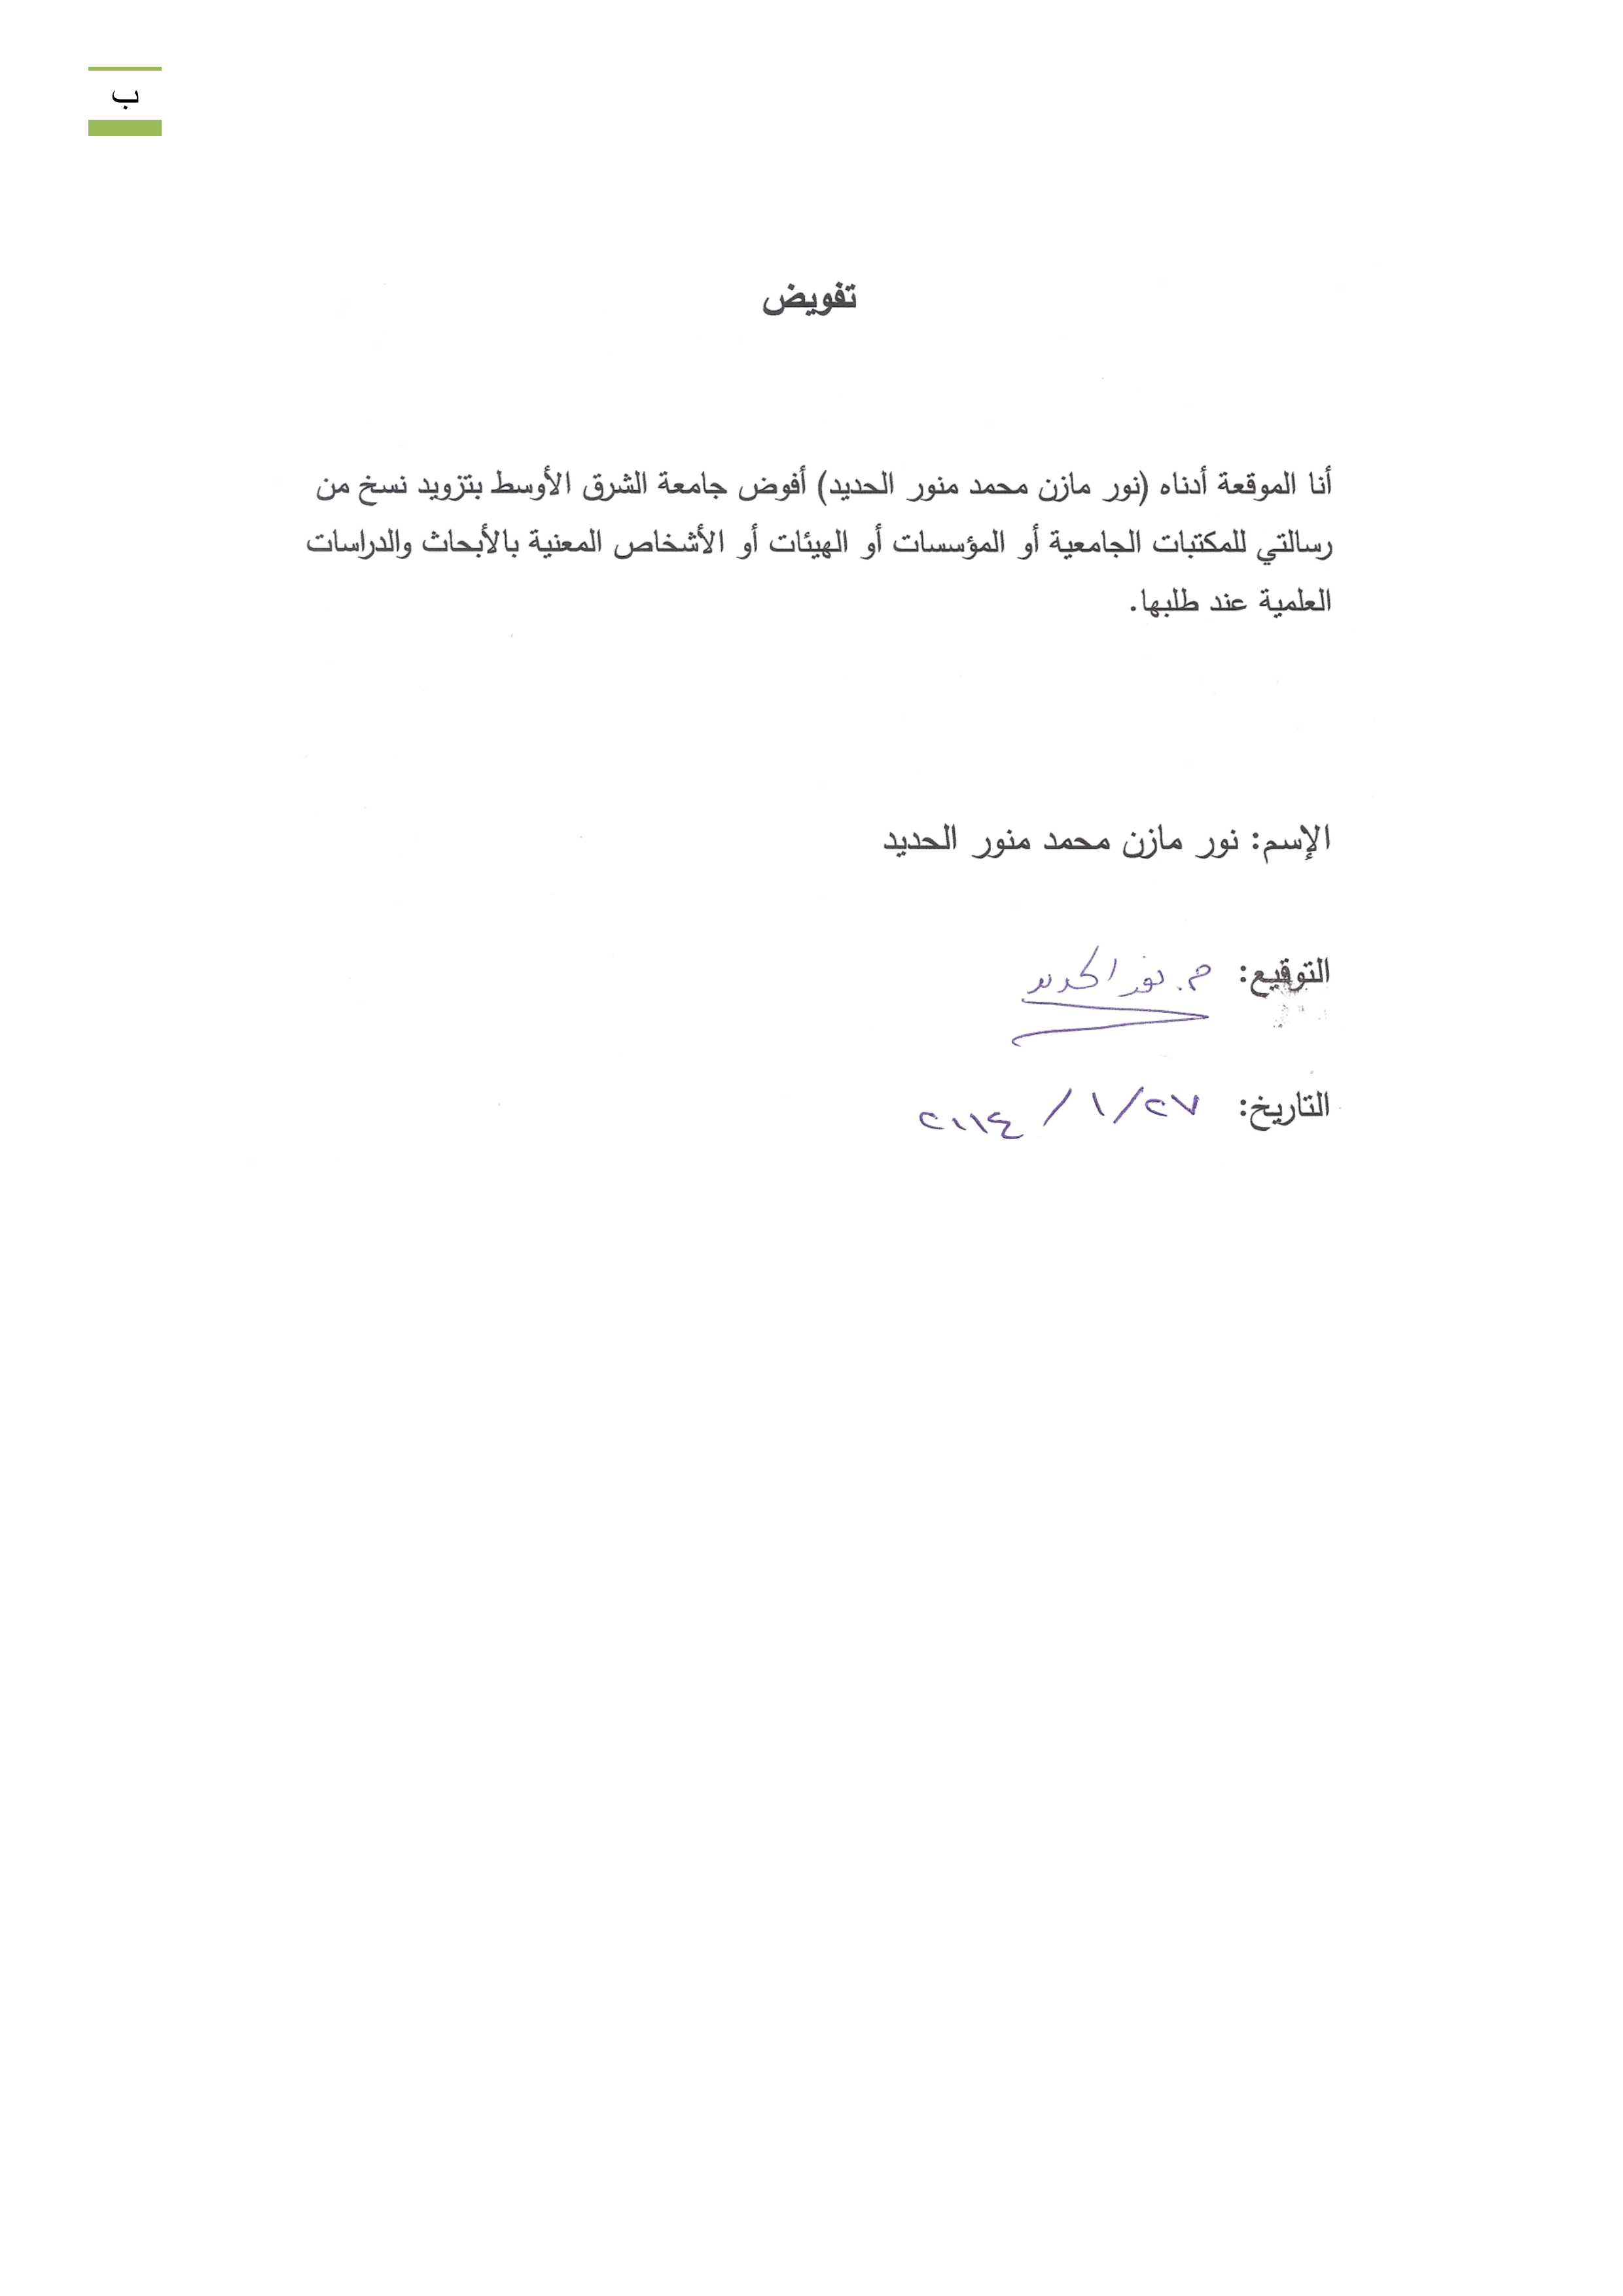 ب
تفويض
أنا الموقعة أدناه (نور مازن محمد منور الحديد) أفوض جامعة الشرق الأوسط بتزويد نسخ من
رسالتي للمكتبات الجامعية أو المؤسسات أو الهيئات أو الأشخاص المعنية بالأبحاث والدراسات
العلمية عند طلبها.
الإسم: نور مازن محمد منور الحديد
التوقيع: م. نور الحديد
التاريخ: ٢٧/ ١ / ٢٠١٤